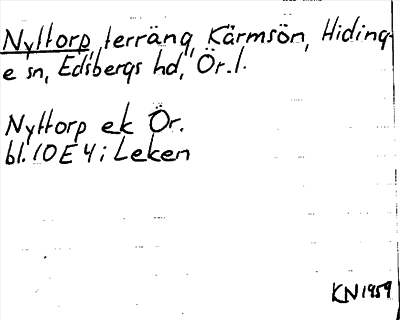 Nyttorp, terräng, Kärmsön, Hiding-
e sn, Edsbergs hd, Ör. l.
Nyttorp ek Ör.
bl. 10 E 4 i Leken
KN 1959